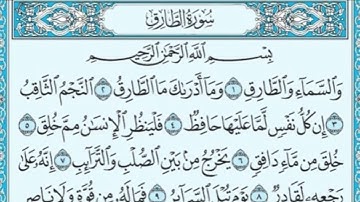 سُورَةُ الطَّارِقِ
بِسْمِ ٱللَّهِ ٱلرَّحْمَٰنِ ٱلرَّحِيمِ
وَٱلسَّمَآءِ وَٱلطَّارِقِ ١ وَمَآ أَدْرَىٰكَ مَا ٱلطَّارِقُ ٢ ٱلنَّجْمُ ٱلثَّاقِبُ
٣ إِن كُلُّ نَفْسٍ لَّمَّا عَلَيْهَا حَافِظٌ ٤ فَلْيَنظُرِ ٱلْإِنسَٰنُ مِمَّ خُلِقَ ٥
خُلِقَ مِن مَّآءٍ دَافِقٍ ٦ يَخْرُجُ مِنۢ بَيْنِ ٱلصُّلْبِ وَٱلتَّرَآئِبِ ٧ إِنَّهُۥ عَلَىٰ
رَجْعِهِۦ لَقَادِرٌ ٨ يَوْمَ تُبْلَى ٱلسَّرَآئِرُ ٩ فَمَا لَهُۥ مِن قُوَّةٍ وَلَا نَاصِرٍ